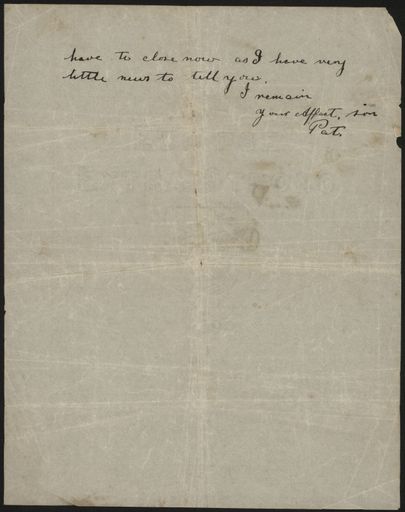 have to close now as I have very
little news to tell you.
I remain
your Affect. son
Pat.